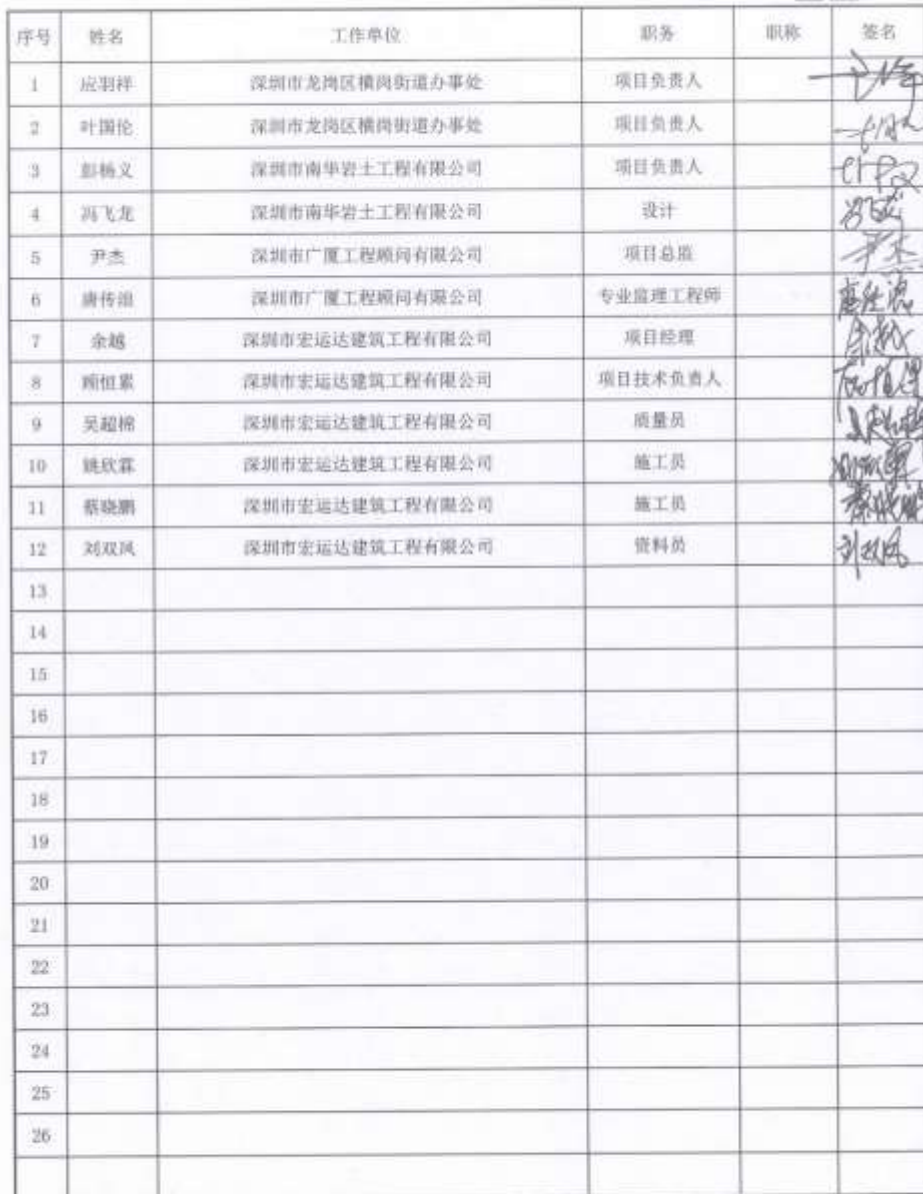 序号 姓名 工作单位 职务 职称 签名
1 应羽祥 深圳市龙岗区横岗街道办事处 项目负责人
2 叶国伦 深圳市龙岗区横岗街道办事处 项目负责人
3 彭杨义 深圳市南华岩土工程有限公司 项目负责人
4 冯飞龙 深圳市南华岩土工程有限公司 设计 冯飞龙
5 尹杰 深圳市广厦工程顾问有限公司 项目总监 尹杰
6 唐传浪 深圳市广厦工程顾问有限公司 专业监理工程师 唐传浪
7 余越 深圳市宏运达建筑工程有限公司 项目经理 余越
8 顾恒累 深圳市宏运达建筑工程有限公司 项目技术负责人
9 吴超棉 深圳市宏运达建筑工程有限公司 质量员 吴超棉
10 姚欣霖 深圳市宏运达建筑工程有限公司 施工员
11 蔡晓鹏 深圳市宏运达建筑工程有限公司 施工员 蔡晓鹏
12 刘双凤 深圳市宏运达建筑工程有限公司 资料员 刘双凤
13
14
15
16
17
18
19
20
21
22
23
24
25
26